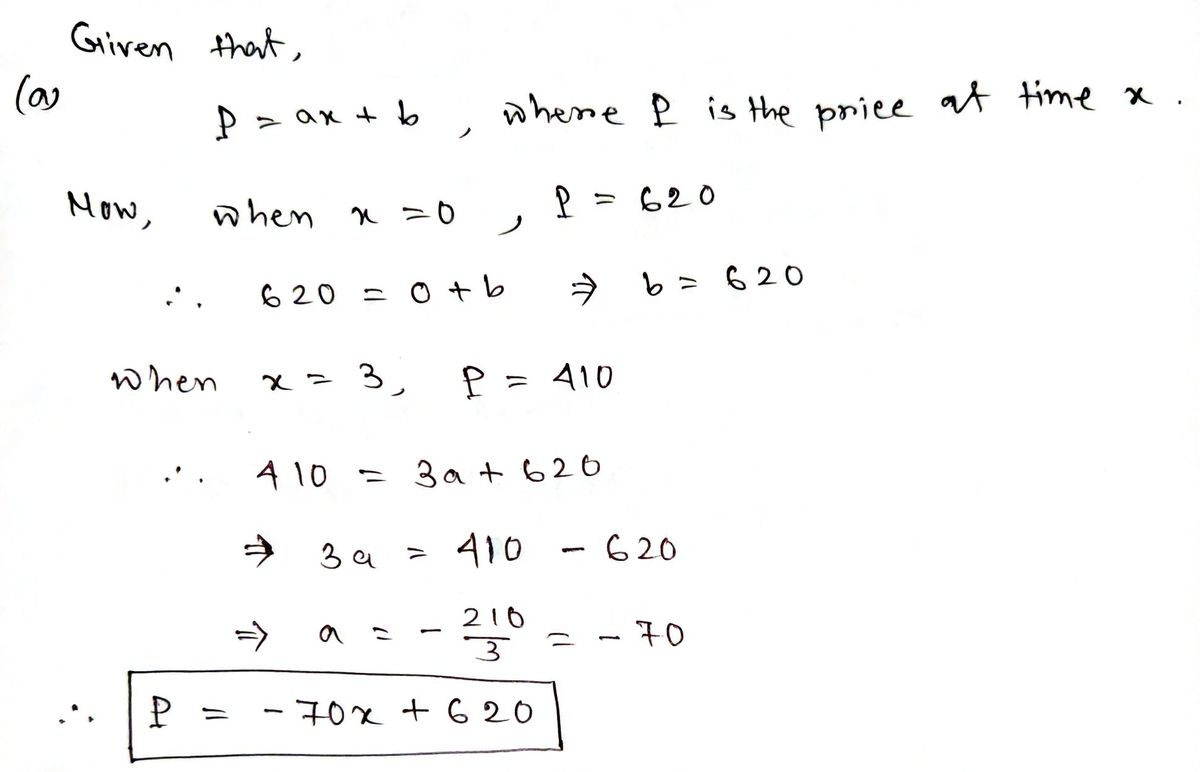 Given that,
(a)
P = ax + b , where P is the price at time x .
Now, when x = 0 , P = 620
∴ 620 = 0 + b ⇒ b = 620
when x = 3, P = 410
∴ 410 = 3a + 620
⇒ 3a = 410 - 620
⇒ a = - 210/3 = - 70
∴ P = - 70x + 620